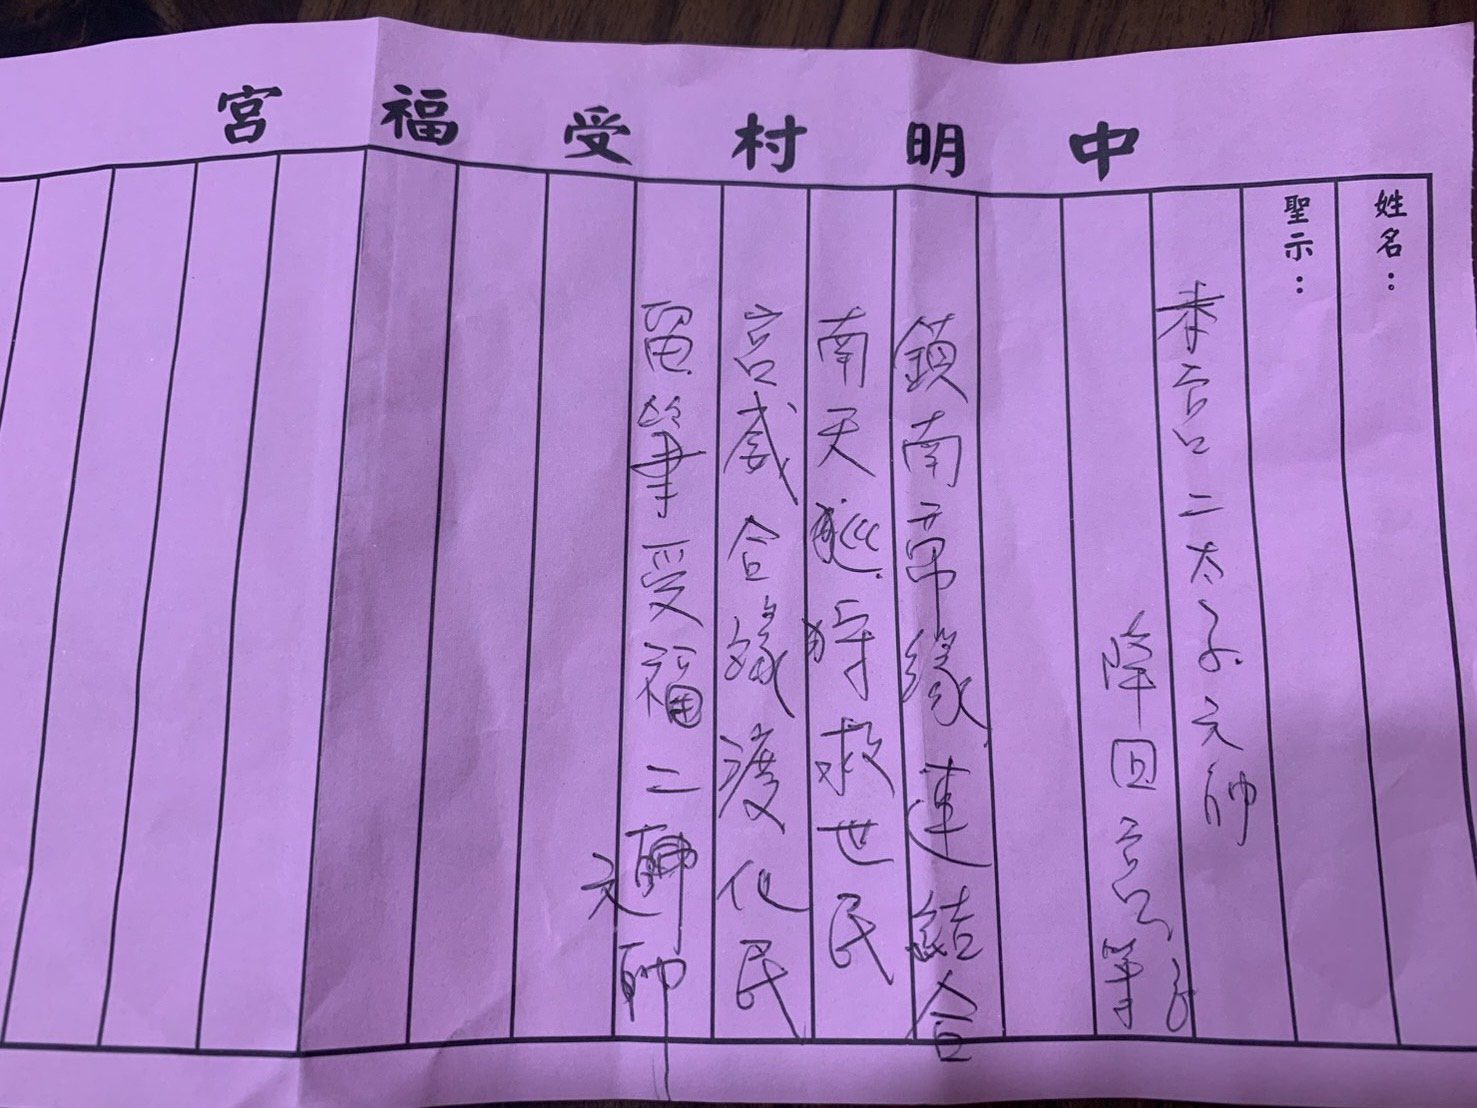 中明村受福宮
姓名：
聖示：
本宮二太子元帥
降回宮筆
鎮南帝緣連結合
南天巡狩救世民
宮威合緣渡化民
留筆受福二
元帥